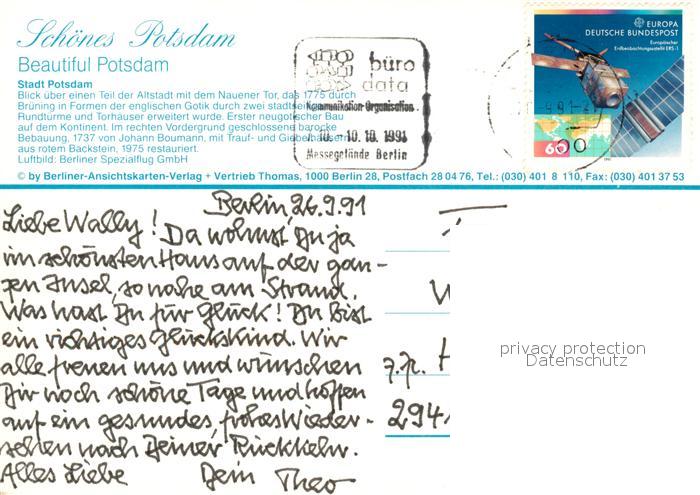 Schönes Potsdam
Beautiful Potsdam
Stadt Potsdam
Blick über einen Teil der Altstadt mit dem Nauener Tor, das 1775 durch
Brüning in Formen der englischen Gotik durch zwei stadtseitige
Rundtürme und Torhäuser erweitert wurde. Erster neugotischer Bau
auf dem Kontinent. Im rechten Vordergrund geschlossene barocke
Bebauung, 1737 von Johann Boumann, mit Trauf- und Giebelhäusern
aus rotem Backstein, 1975 restauriert.
Luftbild: Berliner Spezialflug GmbH
büro
data
Kommunikation-Organisation
10.-10.10.1991
Messegelände Berlin
EUROPA
DEUTSCHE BUNDESPOST
Europäischer
Erdbeobachtungssatellit ERS-1
60
© by Berliner-Ansichtskarten-Verlag + Vertrieb Thomas, 1000 Berlin 28, Postfach 28 04 76, Tel.: (030) 401 8 110, Fax: (030) 401 37 53
Berlin, 26.9.91
Liebe Wally! Da wohnst Du ja
im schönsten Haus auf der gan-
zen Insel, so nahe am Strand.
Was hast Du für Glück! Du bist
ein richtiges Glückskind. Wir
alle freuen uns und wünschen
Dir noch schöne Tage und hoffen
auf ein gesundes, frohes Wieder-
sehen nach Deiner Rückkehr.
Alles Liebe Dein Theo
z.Zt. H
294
privacy protection
Datenschutz